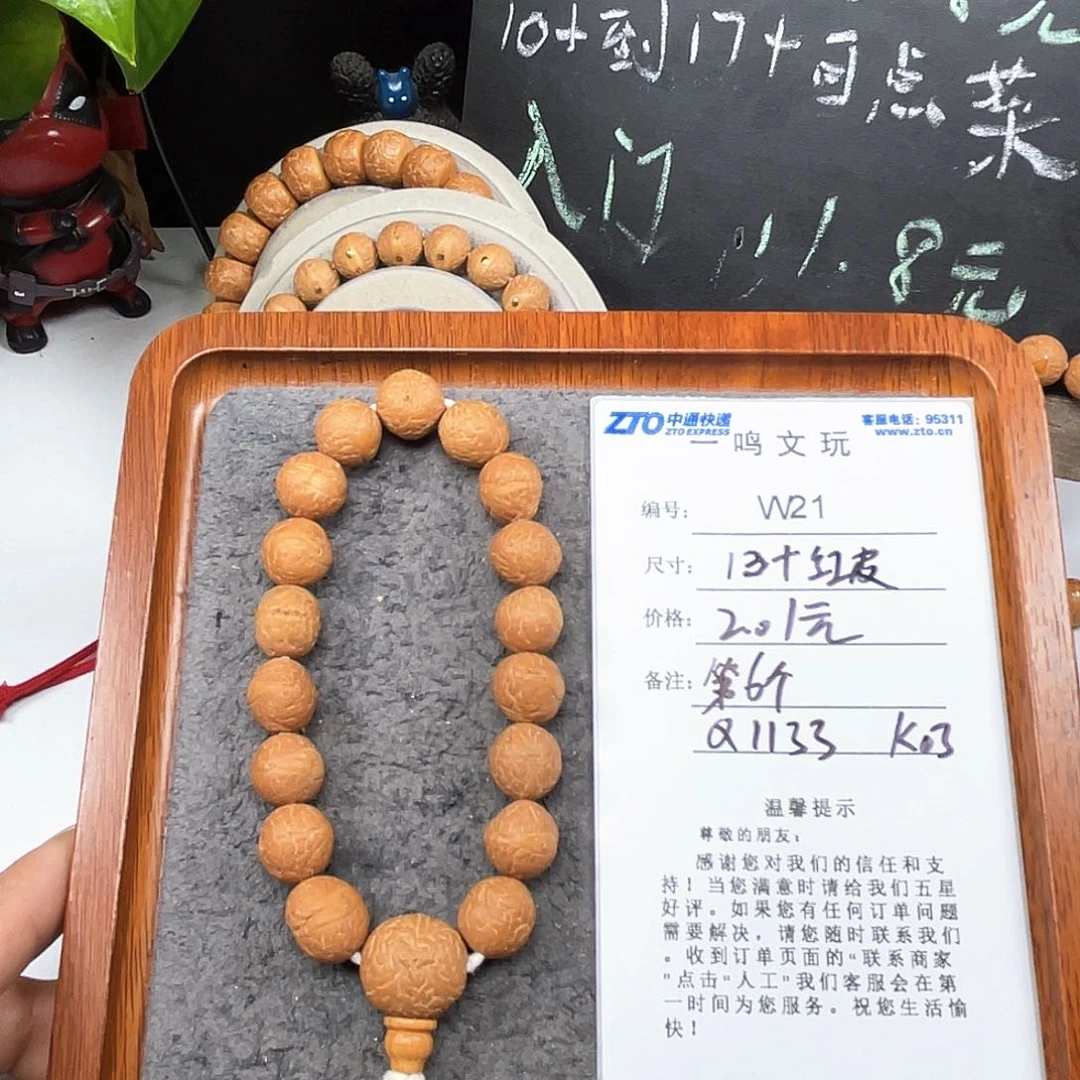 10+到17+自点菜
元
入门
8元
ZTO 中通快递
ZTO EXPRESS
客服电话：95311
www.zto.cn
一鸣文玩
编号： W21
尺寸： 13+红皮
价格： 2.01元
备注： 第6个
Q1133 K03
温馨提示
尊敬的朋友：
感谢您对我们的信任和支
持！当您满意时请给我们五星
好评。如果您有任何订单问题
需要解决，请您随时联系我们
。收到订单页面的“联系商家
"点击“人工"我们客服会在第
一时间为您服务。祝您生活愉
快！